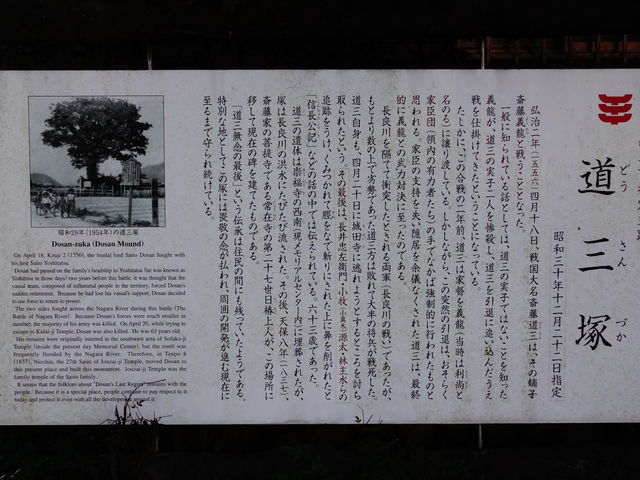 道三塚
どう さん づか
昭和三十年十二月二十二日指定
弘治二年(一五五六)四月十八日、戦国大名斎藤道三は、その嫡子
斎藤義龍と戦うこととなった。
一般に知られている話としては、道三の実子ではないことを知った
義龍が、道三の実子二人を惨殺し、道三を引退に追い込んだうえ
戦を仕掛けてきたということになっている。
たしかに、この合戦の二年前、道三は家督を義龍(当時は利尚と
名のる)に譲り渡している。しかしながら、この突然の引退は、おそらく
家臣団(領内の有力者たち)の手でなかば強制的に行われたものと
思われる。家臣の支持を失い隠居を余儀なくされた道三は、最終
的に義龍との武力対決に至ったのである。
長良川を隔てて衝突したとされる両軍(長良川の戦い)であったが、
もとより数の上で劣勢であった道三方は敗れて大半の将兵が戦死した。
道三自身も、四月二十日に城田寺に逃れようとするところを討ち
取られたという。その最後は、長井忠左衛門、小牧(小真木)源太、林主水らの
追跡をうけ、くみつかれて脛をなで斬りにされた上に鼻を削がれたと
「信長公記」などの話の中では伝えられている。六十三歳であった。
道三の遺体は崇福寺の西南(現メモリアルセンター内)に埋葬されたが、
塚は長良川の洪水にたびたび流された。その後、天保八年(一八三七)、
斎藤家の菩提寺である常在寺の第二十七世日椿上人が、この場所に
移して現在の碑を建てたものである。
「道三無念の最後」という伝承は住民の間にも残っていたようである。
特別な地としてこの塚には畏敬の念が払われ、周囲の開発が進む現在に
至るまで守られ続けている。
昭和29年(1954年)の道三塚
Dosan-zuka (Dosan Mound)
On April 18, Kouji 2 (1556), the feudal lord Saito Dosan fought with
his heir Saito Yoshitatsu.
Dosan had passed on the family's headship to Yoshitatsu (he was known as
Toshihisa in those days) two years before this battle, it was thought that the
vassal team, composed of influential people in the territory, forced Dosan's
sudden retirement. Because he had lost his vassal's support, Dosan decided
to use force to return to power.
The two sides fought across the Nagara River during this battle (The
Battle of Nagara River). Because Dosan's forces were much smaller in
number, the majority of his army was killed. On April 20, while trying to
escape to Kidai-ji Temple, Dosan was also killed. He was 63 years old.
His remains were originally interred in the southwest area of Sofuku-ji
Temple (inside the present day Memorial Center), but the tomb was
frequently flooded by the Nagara River. Therefore, in Tenpo 8
(1837), Nicchin, the 27th Saint of Jouzai-ji Temple, moved Dosan to
this present place and built this monument. Jouzai-ji Temple was the
family temple of the Saito family.
It seems that the folklore about "Dosan's Last Regret" remains with the
people. Because it is a special place, people continue to pay respect to it
today and protect it even with all the development around it.